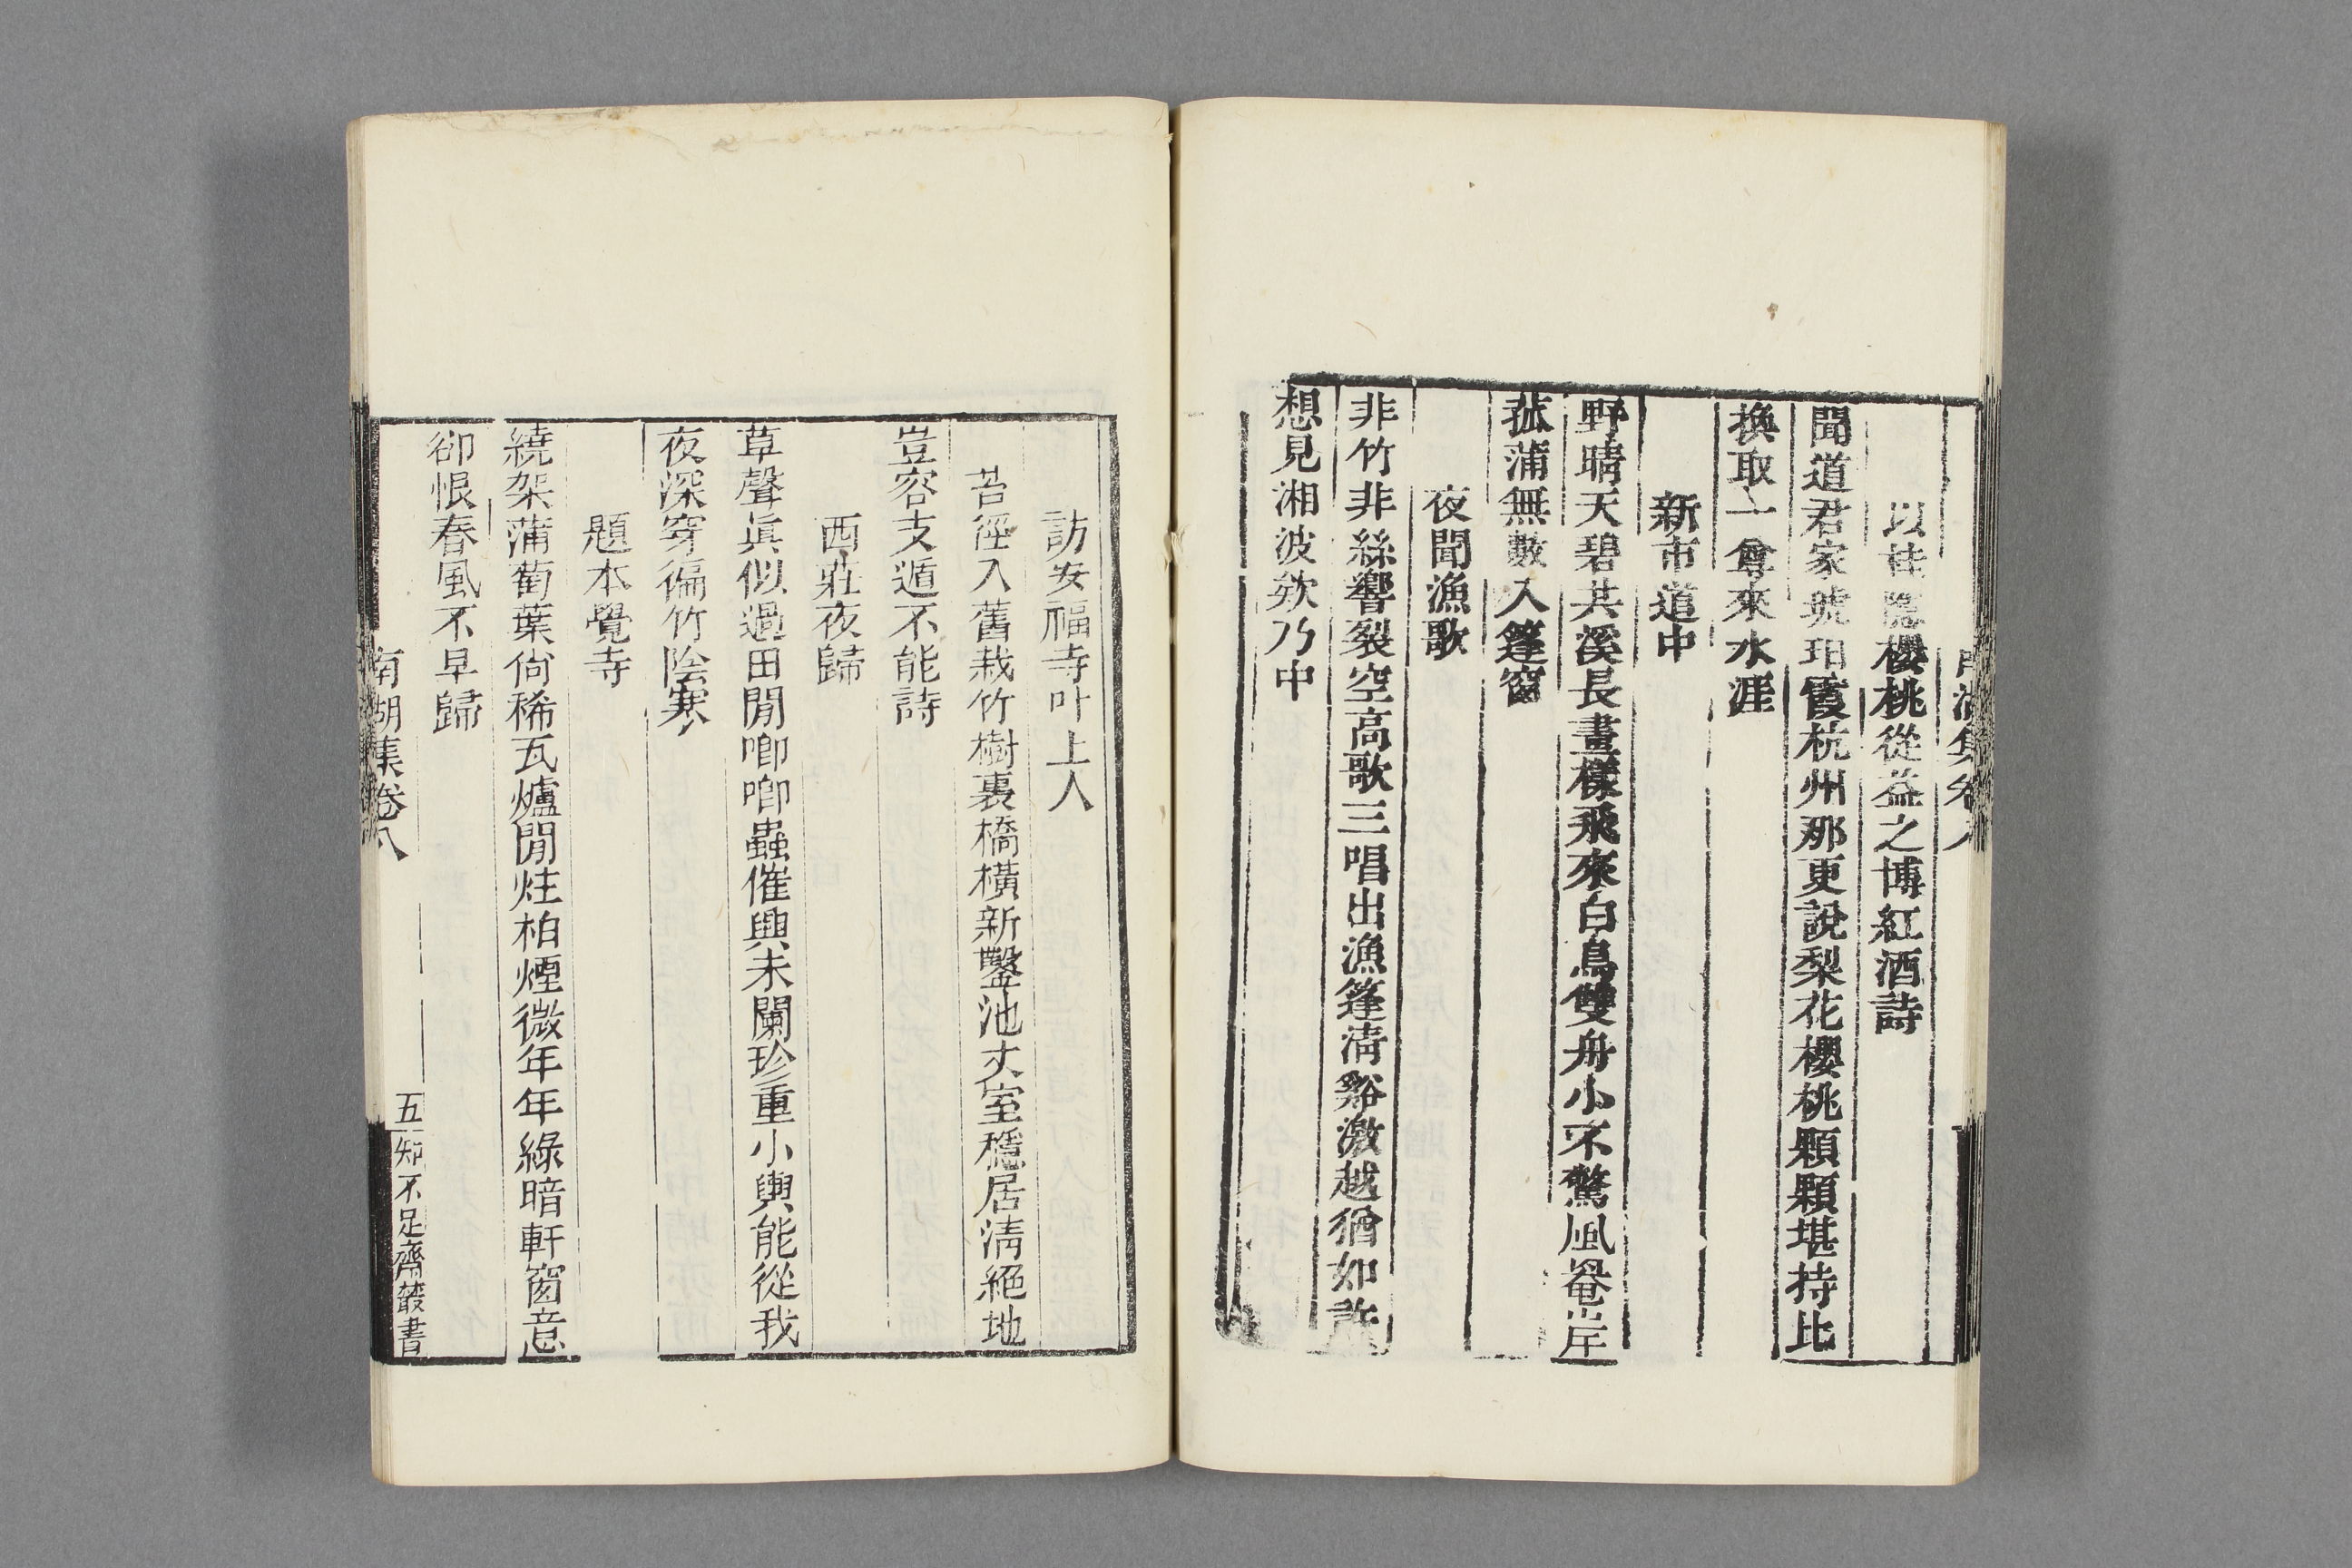 南湖集卷八
以桂隱櫻桃從益之博紅酒詩
聞道君家號琩霞杭州那更說梨花櫻桃顆顆堪持比
換取一尊來水涯
新市道中
野晴天碧共溪長畫樣飛來白鳥雙舟小不驚風罨岸
菰蒲無藪入篷窗
夜聞漁歌
非竹非絲響裂空高歌三唱出漁篷淸谿激越猶如許
想見湘波欸乃中
訪安福寺叶上人
苔徑入舊栽竹樹裏橋橫新鑿池丈室穩居淸絕地
豈容支遁不能詩
西莊夜歸
草聲眞似過田閒喞喞蟲催興未闌珍重小輿能從我
夜深穿徧竹陰寒
題本覺寺
繞架蒲萄葉尙稀瓦爐閒炷柏煙微年年綠暗軒窗意
卻恨春風不早歸
南湖集卷八
五
知不足齋叢書